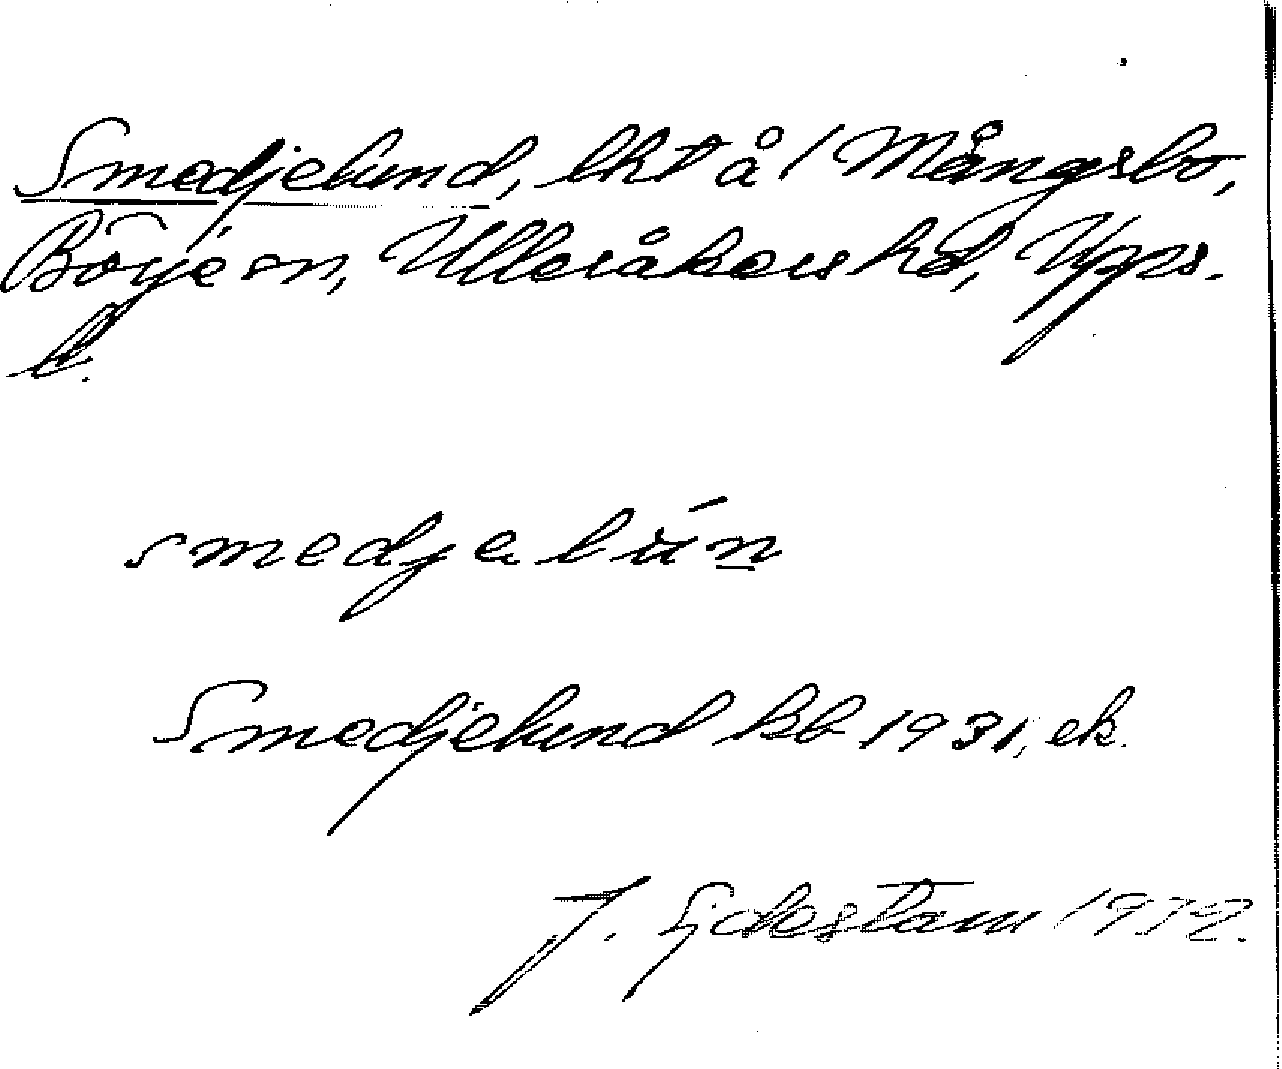 Smedjelund, lht å 1 Mångsbo,
Börje sn, Ulleråkers hd, Upps.
l.
smedjelún
Smedjelund kb 1931, ek.
J. Sjdestam 1932.